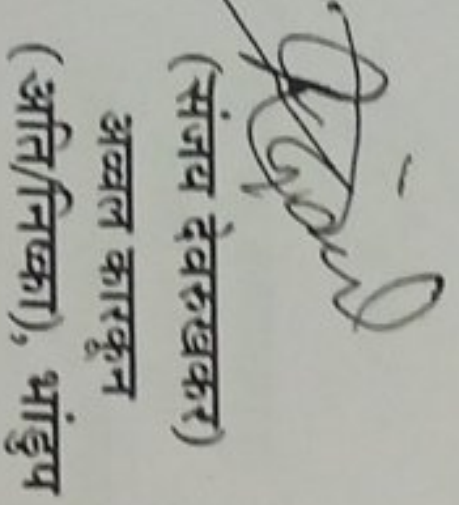 (संजय देवरुखकर)
अव्वल कारकून
(अति/निष्का), भांडुप